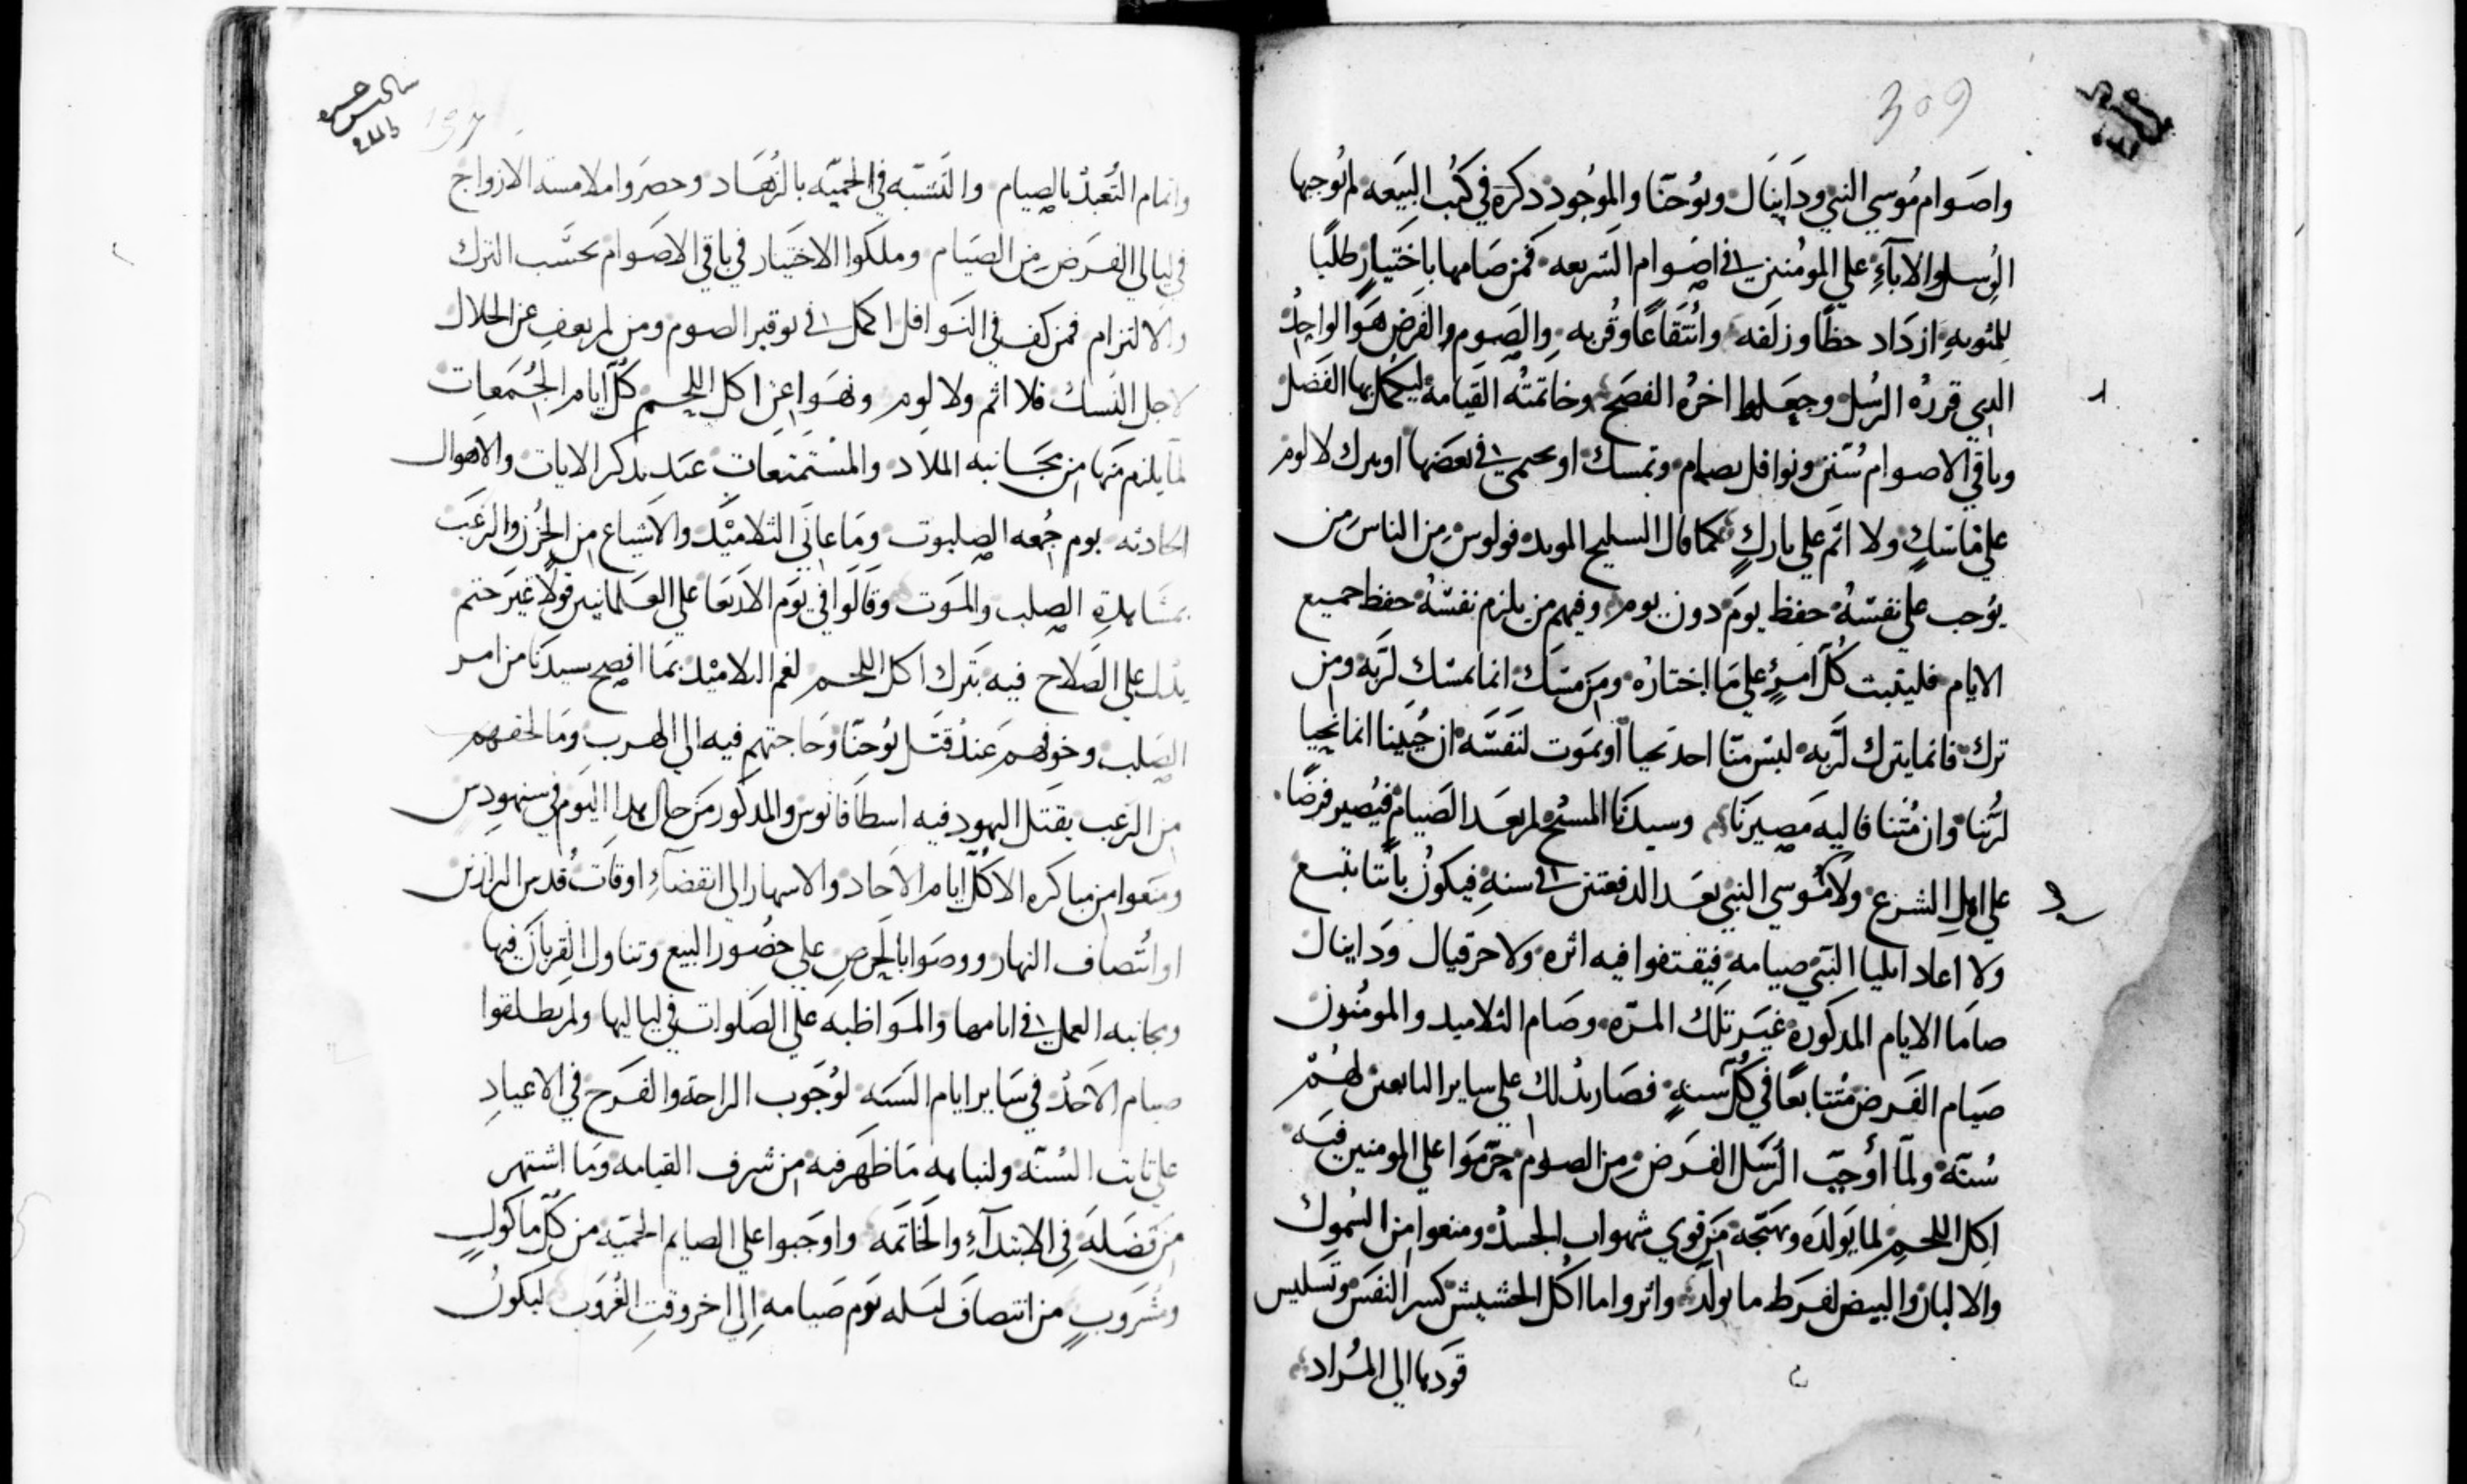 309
واصوام موسي النبي ودانيال ويوحنا والموجود دكره في كتب البيعه لم توجبها
الرسل والابآءِ علي المومنين في اصوام الشريعه فمن صامها باختيار طلبًا
للمثوبه ازداد حظًا وزلفه وانتقاعًا وقربه والصوم والفرض هو الواجب
الدي قرره الرسل وجعلوا اخره الفصح وخاتمته القيامه ليكمل بها الفضل
وباقي الاصوام سنن ونوافل يصام وتمسك او يحمي في بعضها او يترك لا لوم
علي ماسك ولا اثم علي تارك كما قال السليح المويد فولوس من الناس من
يوجب علي نفسه حفظ يوم دون يوم وفيهم من يلزم نفسه حفظ جميع
الايام فليتبت كل امرٍ علي ما اختاره ومن مسك انما يمسك لربه ومن
ترك فانما يترك لربه ليس منا احد يحيا او يموت لنفسه ان حيينا انما نحيا
لربنا وان متنا فاليه مصيرنا وسيدنا المسيح لم يعد الصيام فيصير فرضًا
علي اهل الشرع ولا موسي النبي بعد الدفعتين في سنه فيكون باتنا نتبع
ولا اعاد ايليا النبي صيامه فيقتفوا فيه اثره ولا حزقيال ودانيال
صاما الايام المدكوره غير تلك المره وصام التلاميد والمومنون
صيام الفرض متتابعًا في كل سنهٍ فصار بدلك علي ساير التابعين لهم
سنه ولما أوجب الرسل الفرض من الصوم حرموا علي المومنين فيه
اكل اللحم لما يولده ويهيجه من قوي شهوات الجسد ومنعوا من السموك
والالبان والبيض لفرط ما تولد واثروا ما اكل الحشيش كسر النفس وتسليس
قودها الي المراد
197
واتمام التعبد بالصيام والتشبه في الحميه بالزهاد وحصروا ملامسه الازواج
في ليالي الفرض من الصيام وملكوا الاختيار في باقي الاصوام بحسب الترك
والالتزام فمن كف في النوافل اكمل في توقير الصوم ومن لم يعف عن الحلال
لاجل النسك فلا اثم ولا لوم ونهوا عن اكل اللحم كل ايام الجمعات
لما يلزم منها من مجانبه الملاد والمستمتعات عند تدكر الايات والاهوال
الحادثه يوم جمعه الصلبوت وما عاني التلاميد والاشياع من الحزن والرعب
بمشاهدة الصلب والموت وقالوا في يوم الاربعا علي العلمانيين قولًا غير حتم
يدل علي الصلاح فيه بترك اكل اللحم لغم التلاميد بما افصح سيدنا من امر
الصلب وخوفهم عند قتل يوحنا وحاجتهم فيه الي الهرب وما لحقهم
من الرعب بقتل اليهود فيه اسطافانوس والمدكور من حال هدا اليوم في سنهودس
ومنعوا من مباكره الاكل ايام الاحاد والاسهار الي انقضآءِ اوقات قدس الرازين
او انتصاف النهار ووصوا بالحرص علي حضور البيع وتناول القربان فيها
ومجانبه العمل في ايامها والمواظبه علي الصلوات في لياليها ولم يطلقوا
صيام الاحد في ساير ايام السنه لوجوب الراحة والفرح في الاعياد
علي ثابت السنه ولنباهه ما ظهر فيه من شرف القيامه وما اشتهر
من فضله في الابتدآءِ والخاتمه واوجبوا علي الصايم الحميه من كل ماكولٍ
ومشروبٍ من انتصاف ليله يوم صيامه الي اخر وقت الغروب ليكون